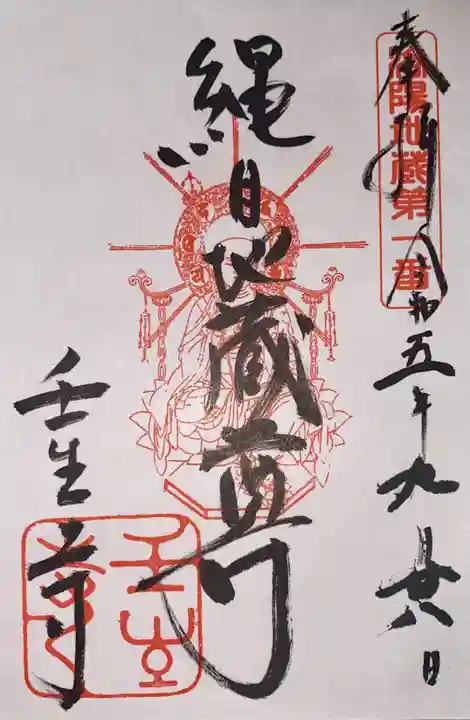 奉拝
令和五年九月廿八日
洛陽地蔵第一番
縄目地蔵尊
壬生寺